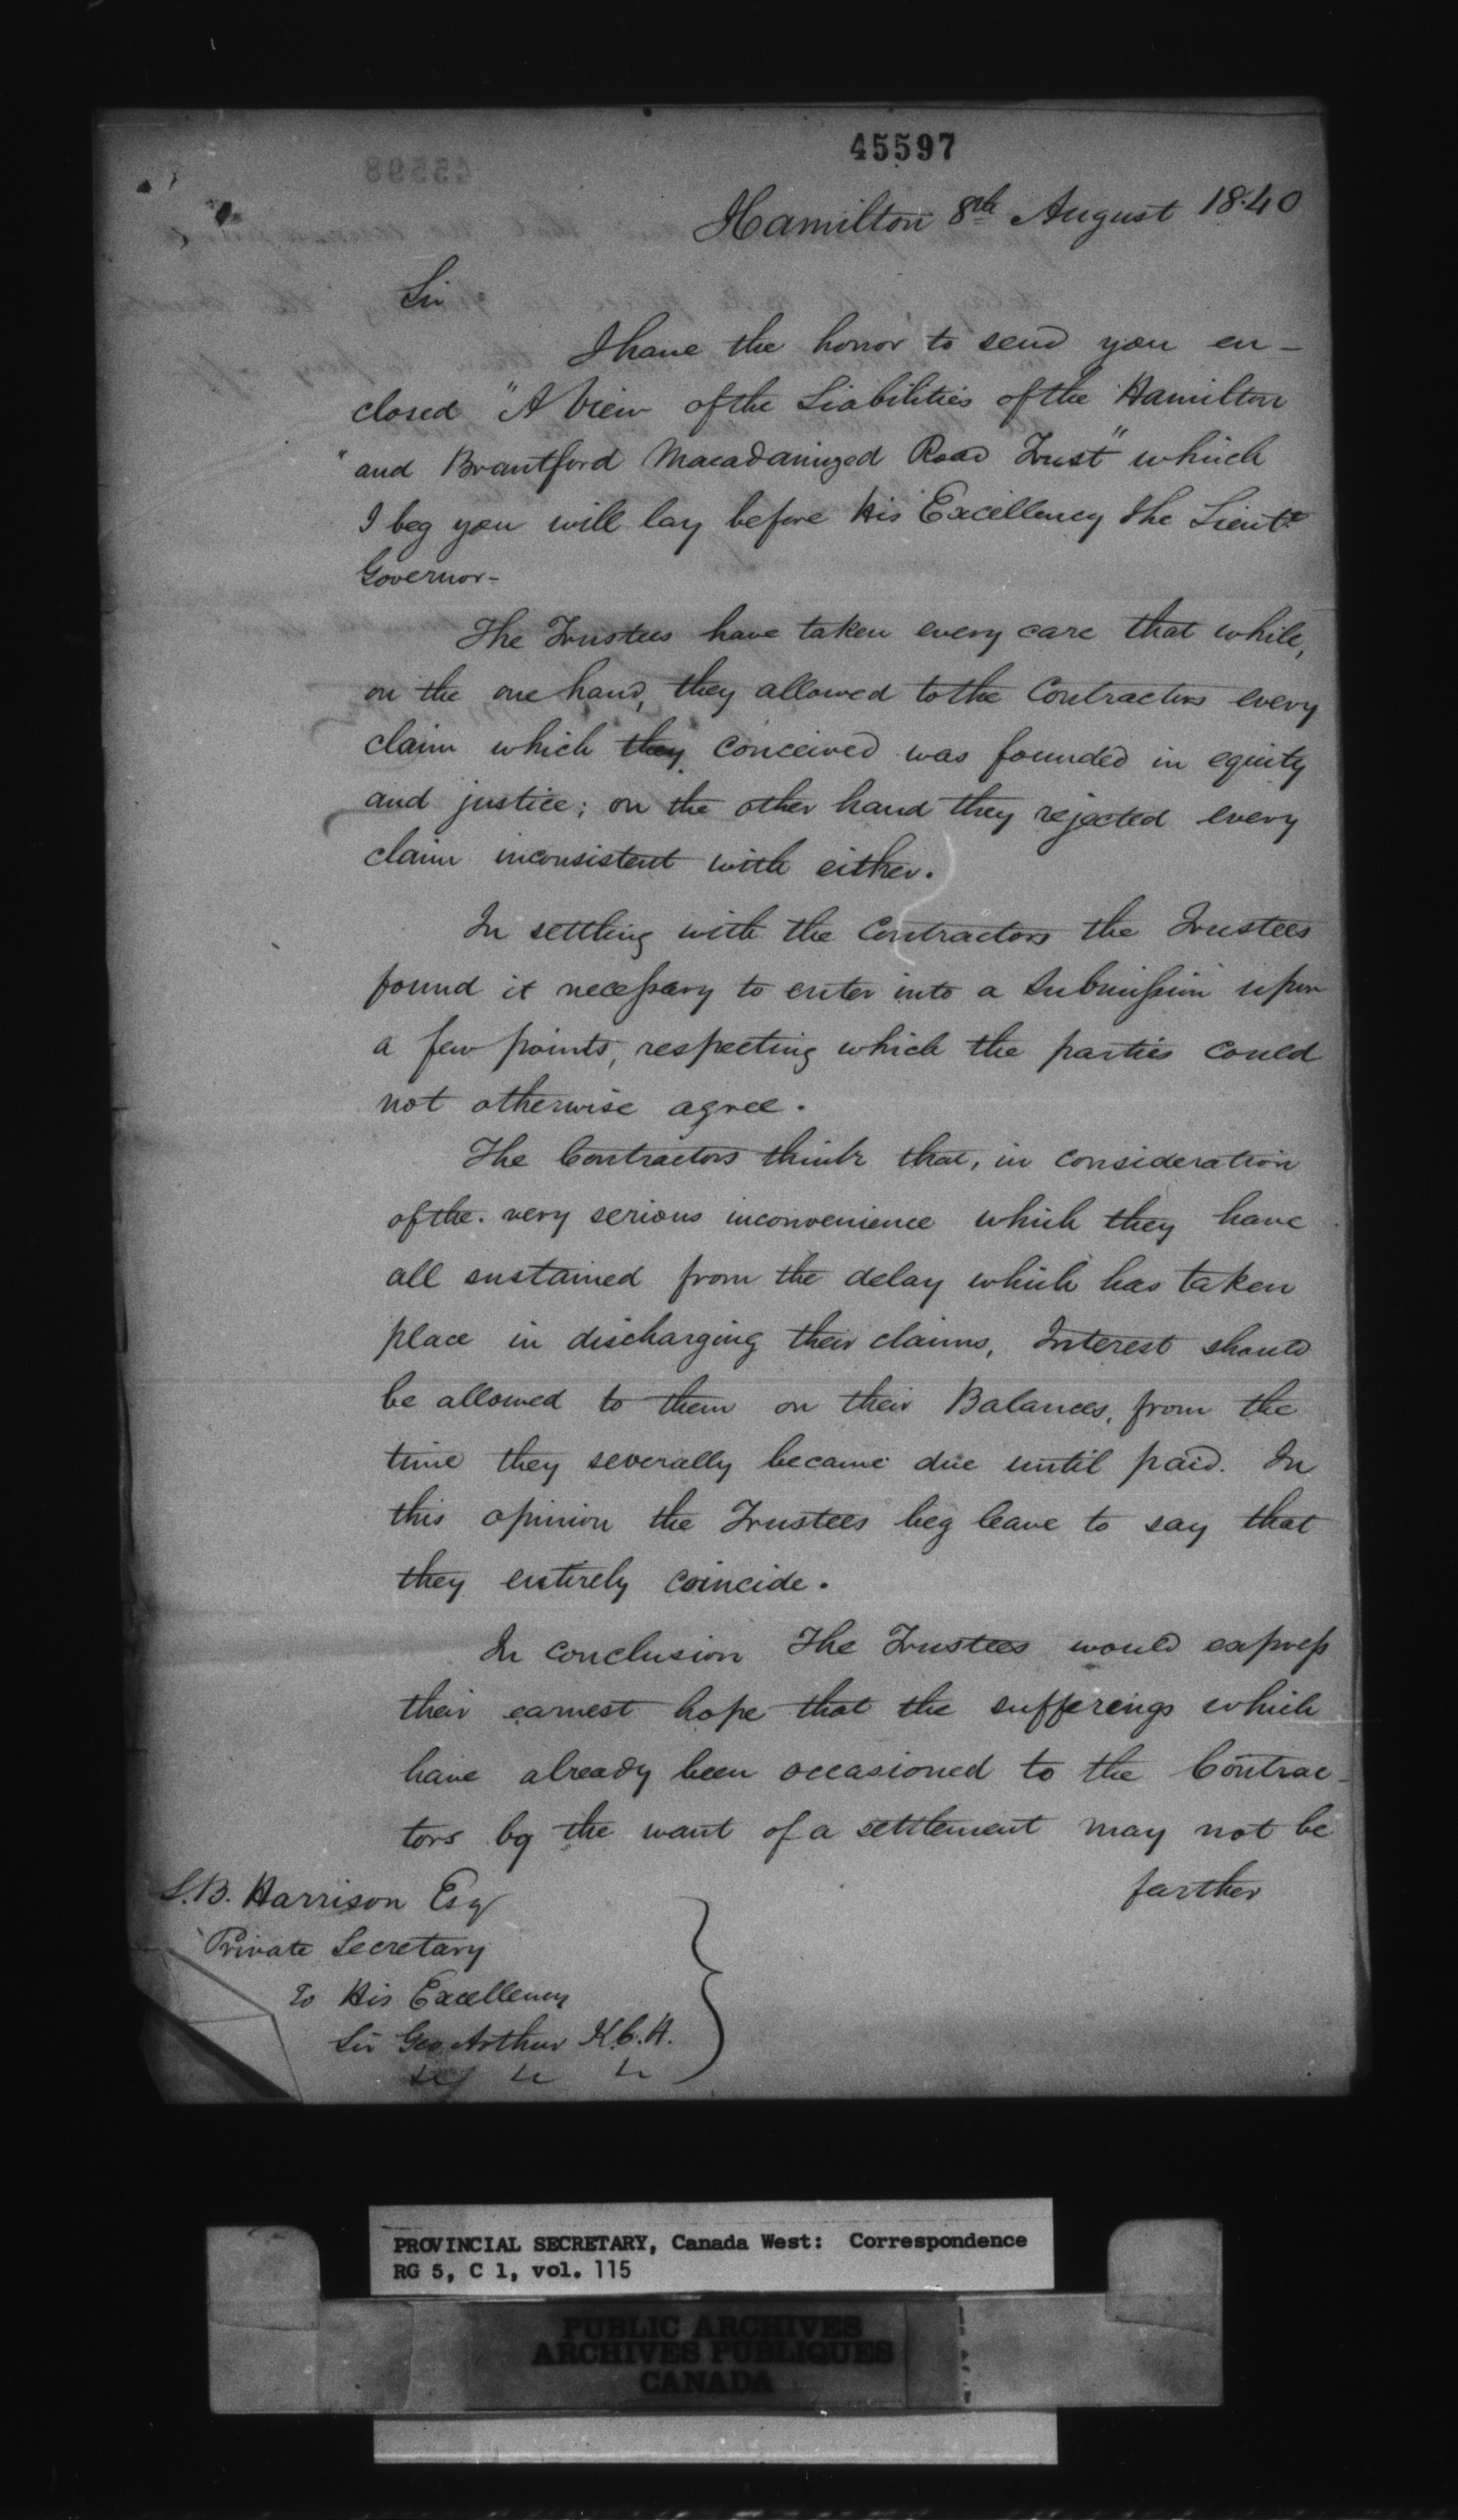 45597
Hamilton 8th August 1840
Sir
I have the honor to send you en-
closed "A View of the Liabilities of the Hamilton
"and Brantford Macadamized Road Trust" which
I beg you will lay before His Excellency the Lieutt.
Governor-
The Trustees have taken every care that while,
on the one hand, they allowed to the Contractors every
claim which they conceived was founded in equity
and justice; on the other hand they rejected every
claim inconsistent with either.
In settling with the Contractors the Trustees
found it necessary to enter into a Submission upon
a few points, respecting which the parties could
not otherwise agree.
The Contractors think that, in consideration
of the very serious inconvenience which they have
all sustained from the delay which has taken
place in discharging their claims, Interest should
be allowed to them on their Balances, from the
time they severally became due until paid. In
this opinion the Trustees beg leave to say that
they entirely coincide.
In conclusion The Trustees would express
their earnest hope that the sufferings which
have already been occasioned to the Contrac-
tors by the want of a settlement may not be
farther
S.B. Harrison Esq
Private Secretary
To His Excellency
Sir Geo. Arthur K.C.H.
PROVINCIAL SECRETARY, Canada West: Correspondence
RG 5, C 1, vol. 115
PUBLIC ARCHIVES
ARCHIVES PUBLIQUES
CANADA